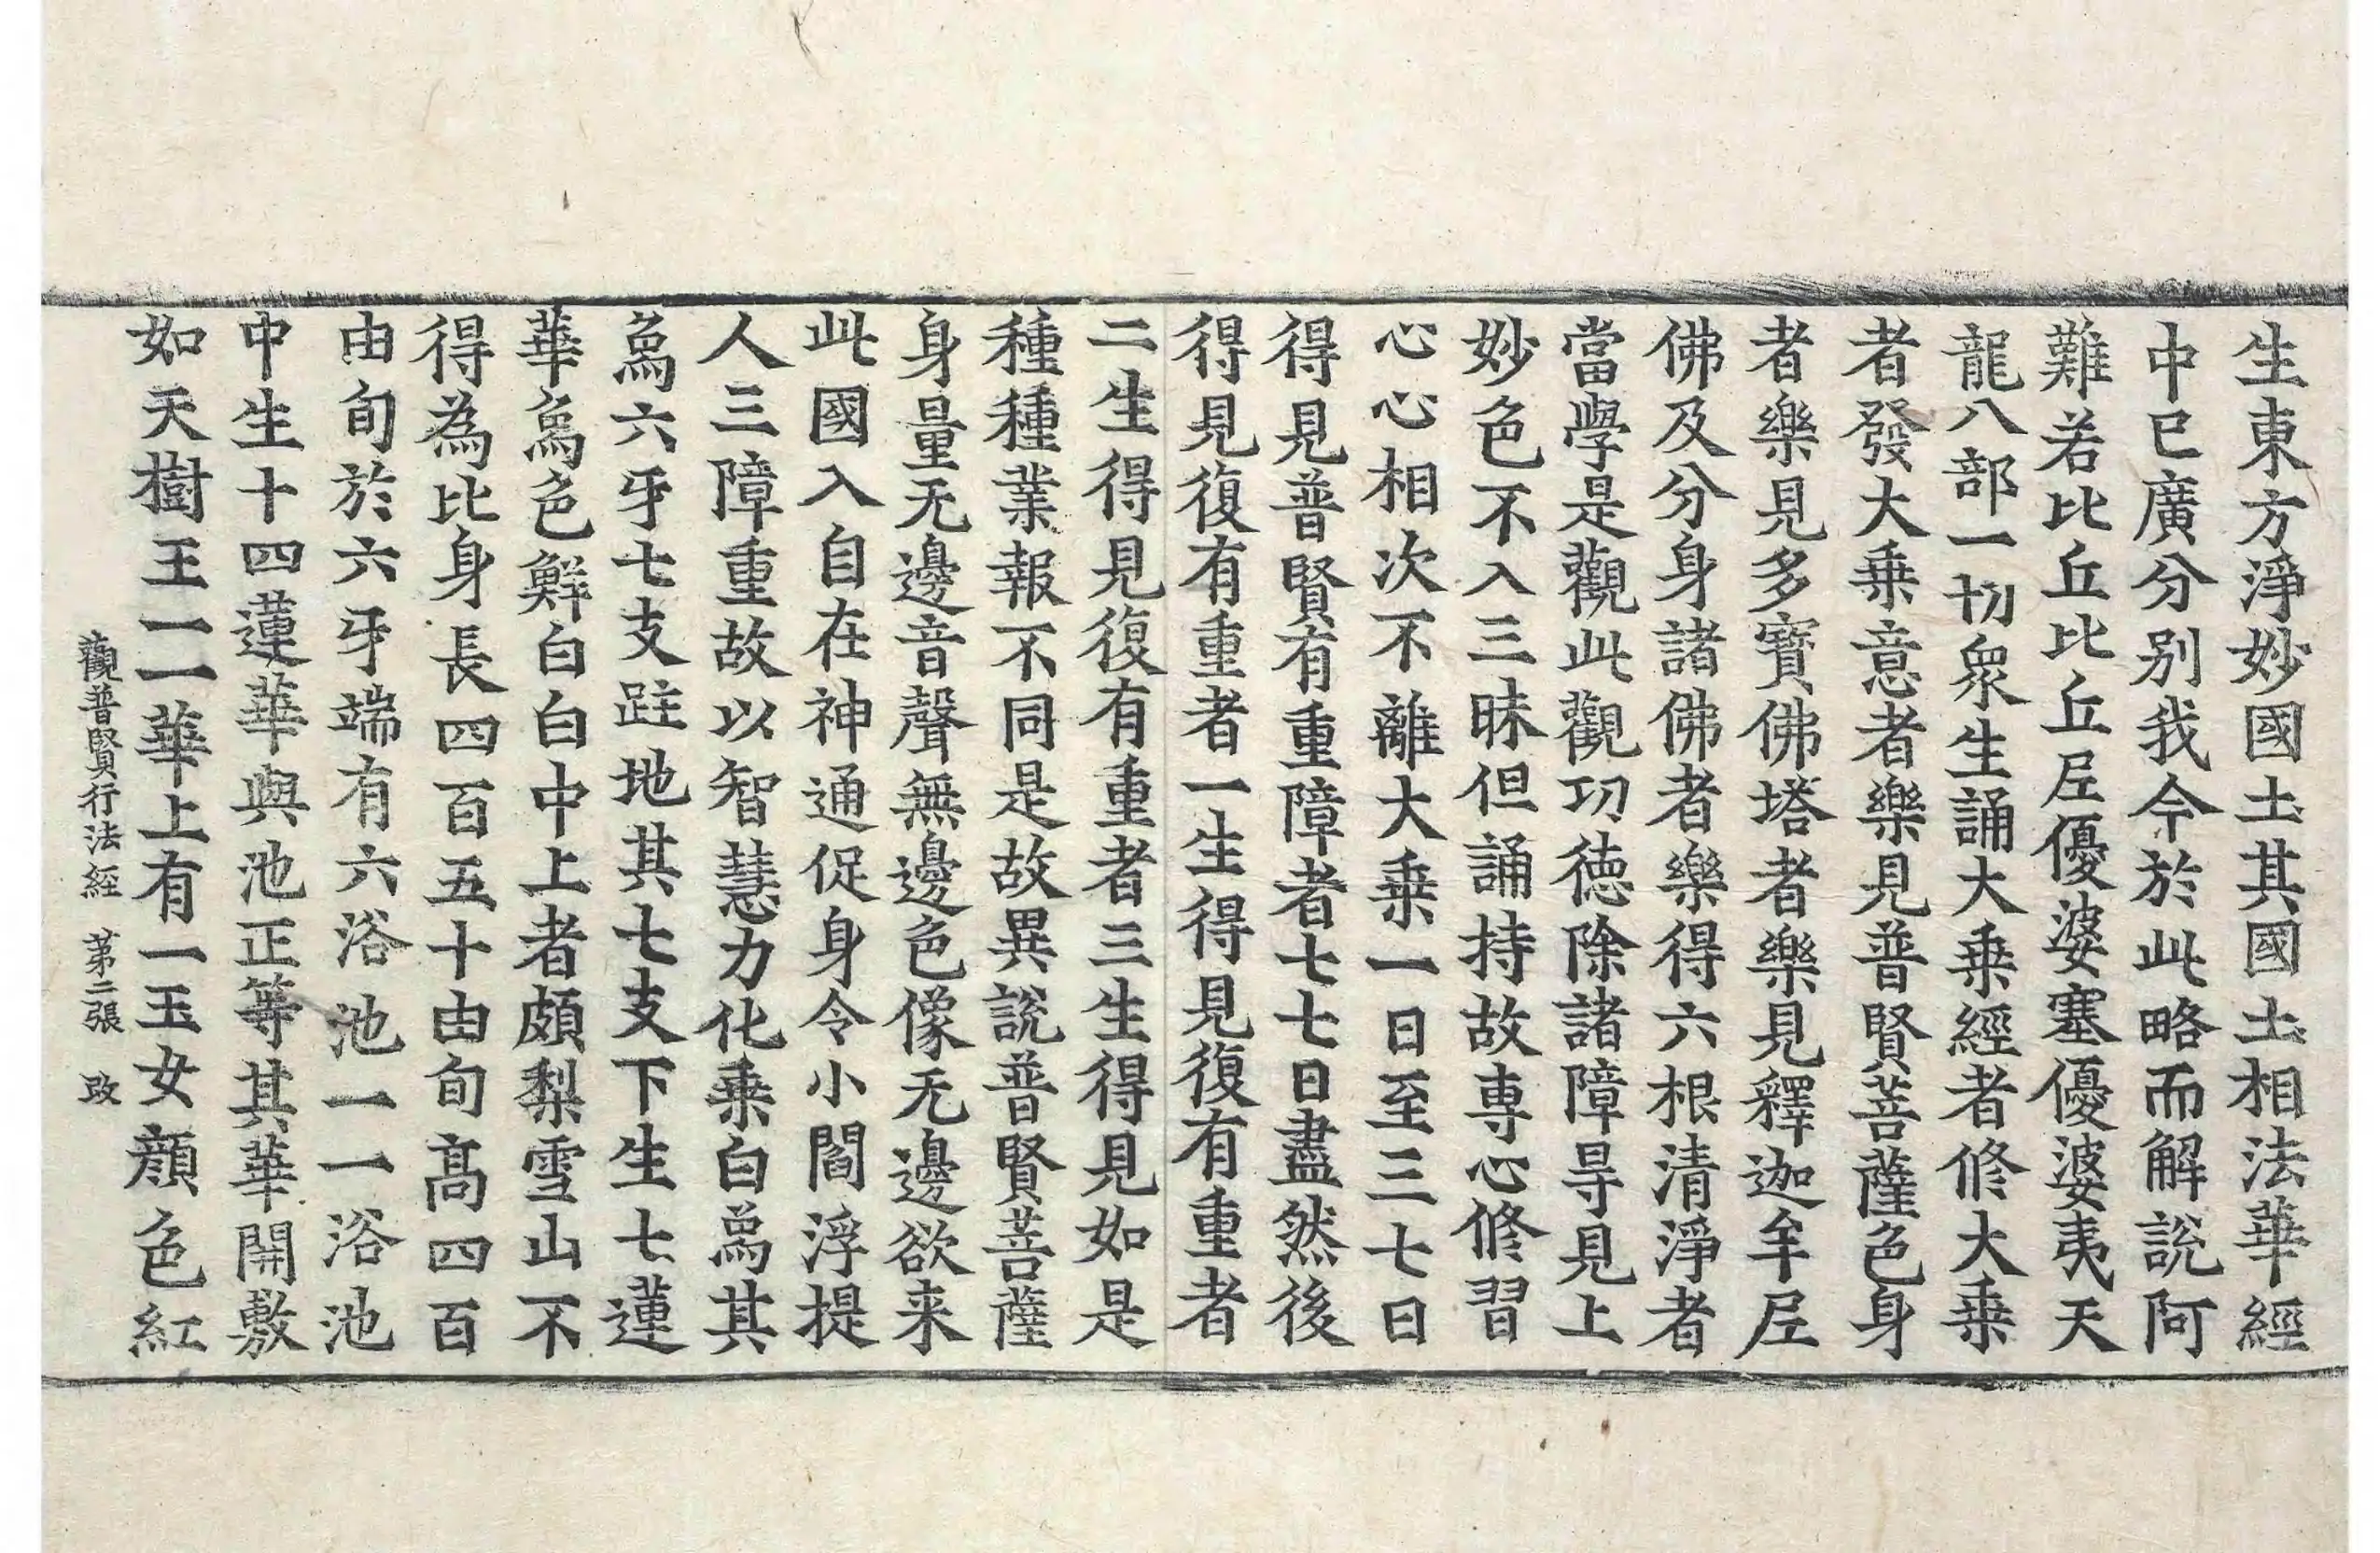 生東方淨妙國土其國土相法華經
中已廣分別我今於此略而解說阿
難若比丘比丘尼優婆塞優婆夷天
龍八部一切衆生誦大乗經者修大乗
者發大乗意者樂見普賢菩薩色身
者樂見多寶佛塔者樂見釋迦牟尼
佛及分身諸佛者樂得六根清淨者
當學是觀此觀功德除諸障㝵見上
妙色不入三昧但誦持故専心修習
心心相次不離大乗一日至三七日
得見普賢有重障者七七日盡然後
得見復有重者一生得見復有重者
二生得見復有重者三生得見如是
種種業報不同是故異說普賢菩薩
身量无邊音聲無邊色像无邊欲来
此國入自在神通促身令小閻浮提
人三障重故以智慧力化乗白爲其
爲六牙七支跓地其七支下生七蓮
華爲色鮮白白中上者頗梨雪山不
得為比身長四百五十由旬髙四百
由旬於六牙端有六浴池一一浴池
中生十四蓮華與池正等其華開敷
如天樹王一一華上有一玉女顔色紅
觀普賢行法經 第二張 改